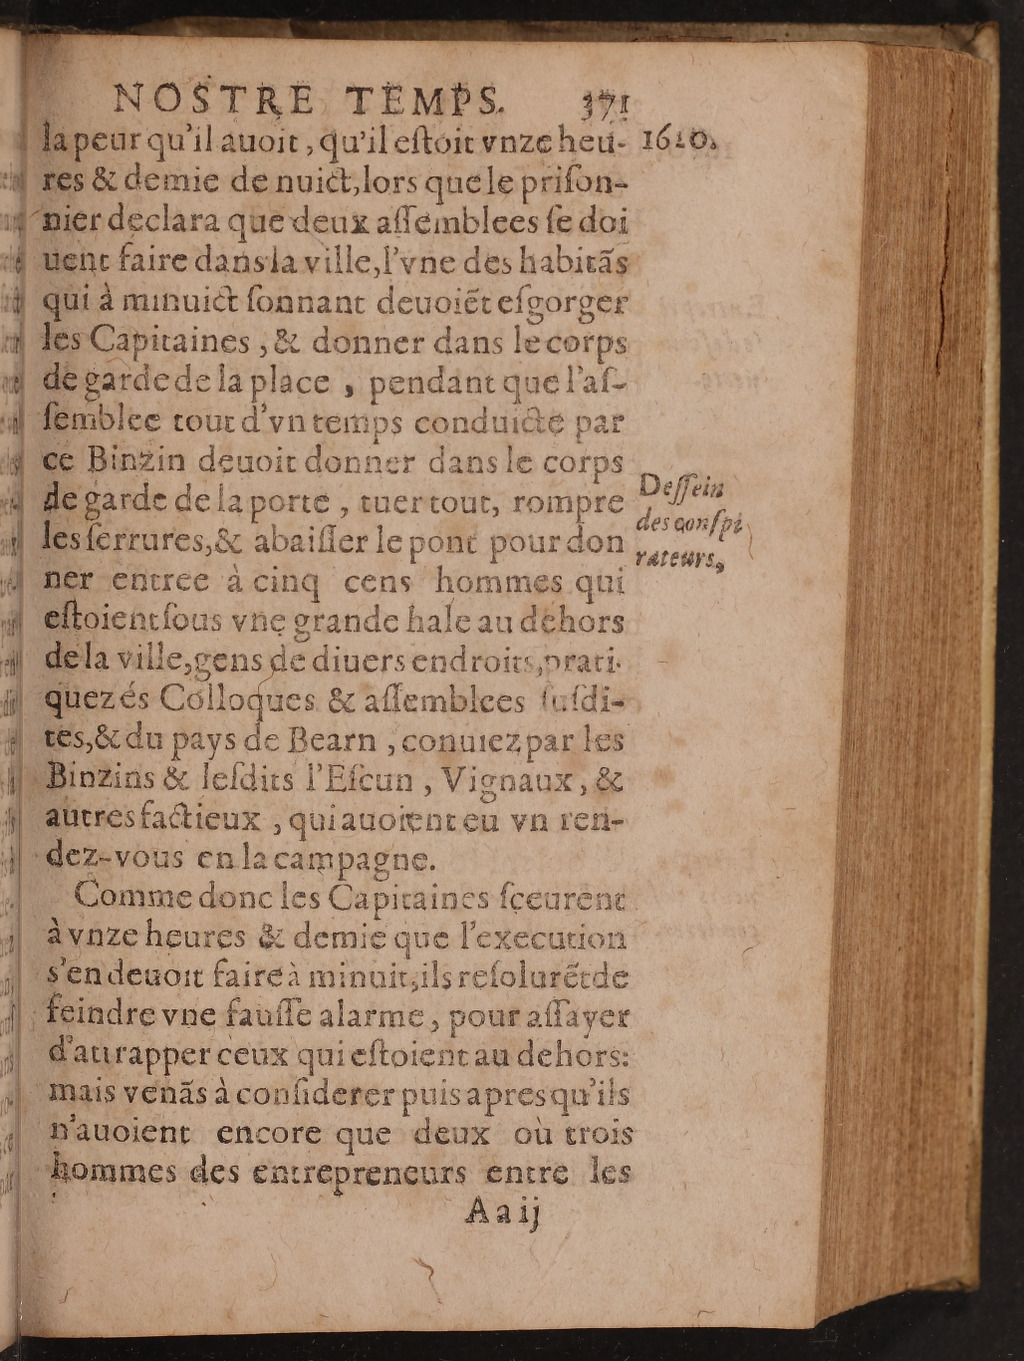 NOSTRE TEMPS. 371
la peur qu'il auoit, qu'il eſtoit vnze heu- 1610.
res & demie de nuict, lors que le priſon-
nier declara que deux aſſemblees ſe doi
uent faire dans la ville, l'vne des habitãs
qui à minuict ſonnant deuoiẽt eſgorger
les Capitaines, & donner dans le corps
de garde de la place, pendant que l'aſ-
ſemblee tout d'vn temps conduicte par
ce Binzin deuoit donner dans le corps
de garde de la porte, tuer tout, rompre
les ferrures, & abaiſſer le pont pour don
ner entree à cinq cens hommes qui
eſtoient ſous vne grande hale au dehors
de la ville, gens de diuers endroits, prati-
quez és Colloques & aſſemblees ſuſdi-
tes, & du pays de Bearn, conuiez par les
Binzins & leſdits l'Eſcun, Vignaux, &
autres factieux, qui auoient eu vn ren-
dez-vous en la campagne.
Comme donc les Capitaines ſceurent
à vnze heures & demie que l'execution
s'en deuoit faire à minuit, ils reſolurẽt de
feindre vne fauſſe alarme, pour aſſayer
d'attrapper ceux qui eſtoient au dehors:
mais venãs à conſiderer puis apres qu'ils
n'auoient encore que deux où trois
hommes des entrepreneurs entre les
Aa ij
Deſſein
des conſpi
rateurs.